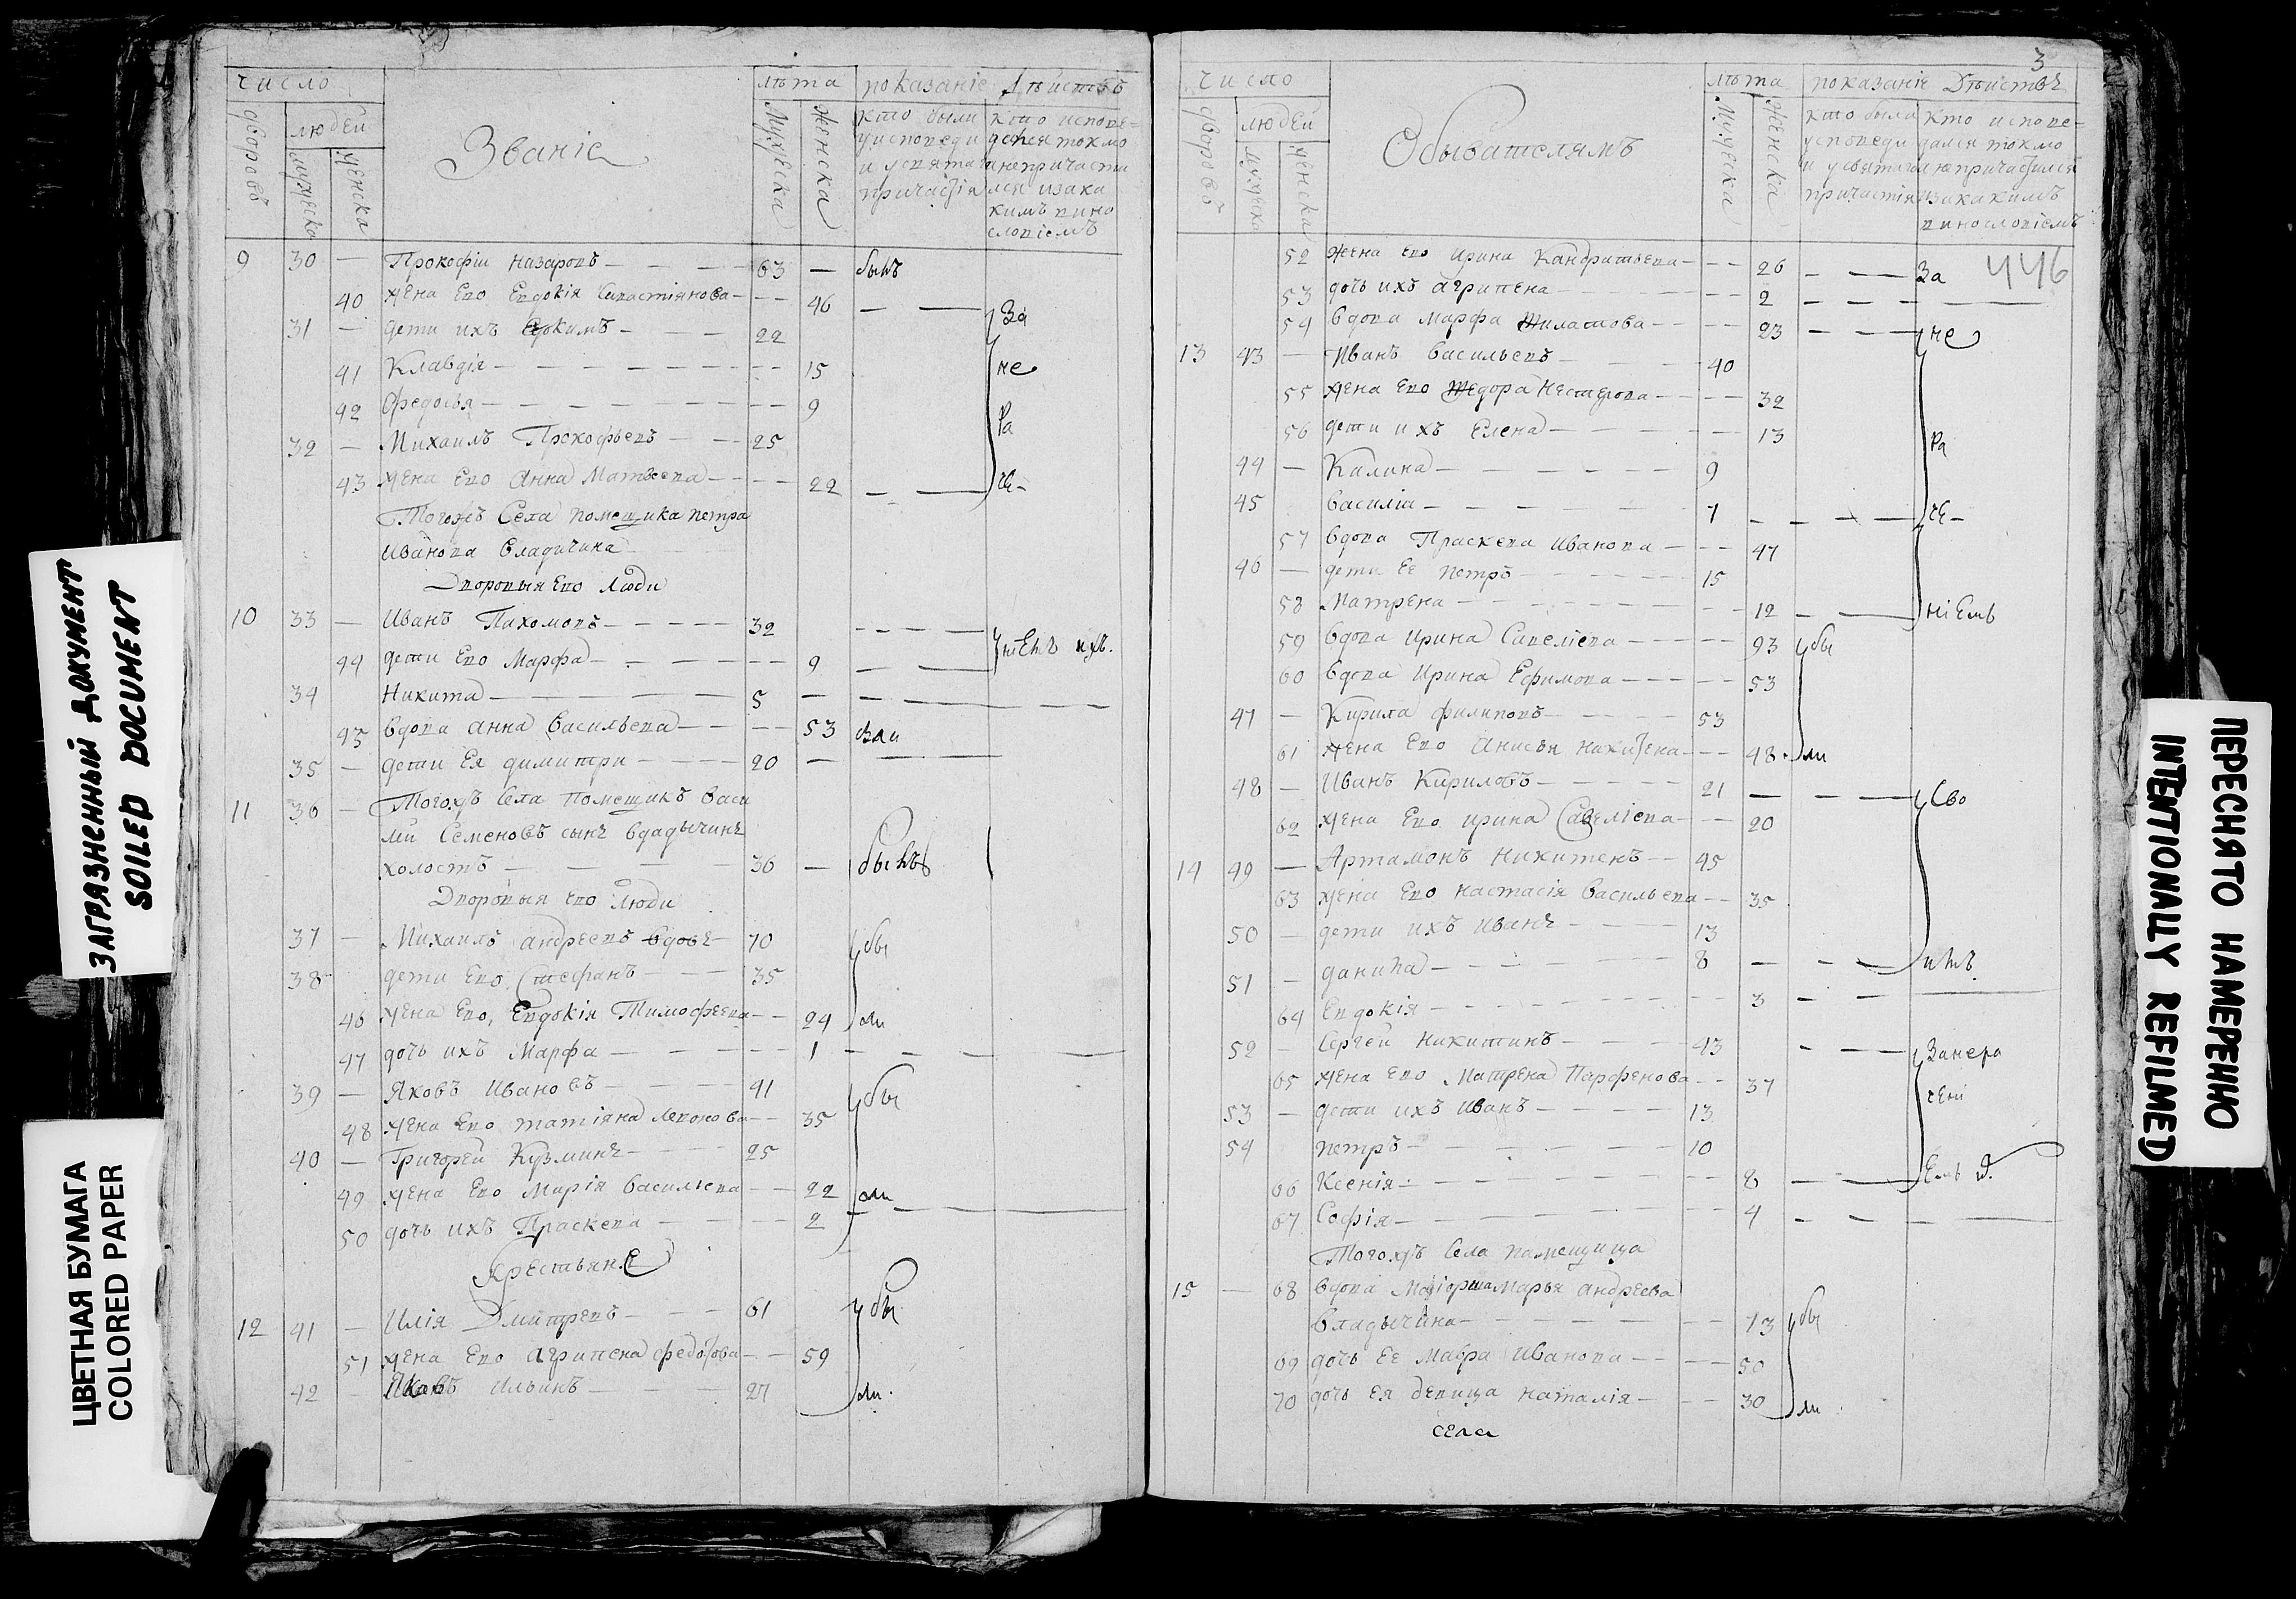 число
Званіе
лѣта
показаніе Дѣйствъ
дворовъ
людей
мужеска
женска
мужеска
женска
кто были
у исповеди
и у святаго
причастія
кто испове-
дален токмо
а непричасти
лся и за ка
кимъ вино
словіемъ
9 30 — Прокофіи Назаровъ — 63 — былъ
40 жена Ево Евдокія Савастіянова — 46 — За
31 — дети ихъ Екимъ — 22
41 Клавдія — 15 не
42 Федосья — 9 ра
32 — Михаилъ Прокофьевъ — 25
43 жена Ево Анна Матвеева — 22 — че-
Тогожъ Села помещика петра
Иванова Владичина
Дворовыя Ево Люди
10 33 — Иванъ Пахомовъ — 32
44 дети Ево Марфа — 9 —
34 Никита — 5 —
45 вдова Анна Васильева — 53
35 — дети Ея димитри — 20 —
11 36 — Тогожъ Села Помещикъ Васи
лій Семеновъ сынъ Владычинъ
холостъ — 36 — былъ
Дворовыя ево Люди
37 — Михаилъ Андреевъ вдовъ — 70 бы
38 дети Ево Стефанъ — 35
46 жена Ево, Евдокія Тимофеева — 24 ли
47 дочь ихъ Марфа — 1 —
39 — Яковъ Ивановъ — 41 бы
48 жена Ево татіяна Леонова — 35
40 — Григорей Кузминъ — 25
49 жена Ево Марія Васильева — 22 ли
50 дочь ихъ Праскева — 2 —
Крестьяне
12 41 — Илія Дмитревъ — 61 бы
51 жена Ево Агрипена федотова — 59
42 — Яковъ Ильинъ — 27 ли.
3
число
Обывателямъ
лѣта
показаніе Дѣйствъ
дворовъ
людей
мужеска
женска
мужеска
женска
кто были
у споведи
и у святаго
причастія
кто испове-
дался токмо
а не причастился
и за какимъ
винословіемъ
446
52 жена Ево Ирина Канфитьева — 26 — За
53 дочь ихъ Агрипена — 2 —
54 вдова Марфа Филатова — 23 — не
13 43 — Иванъ Васильевъ — 40
55 жена Ево Федора Нестерова — 32
56 дети ихъ Елена — 13 ра
44 — Калина — 9
45 Василіи — 7 — че-
57 вдова Праскева Иванова — 47
46 — дети Ее петръ — 15
58 Матрена — 12 — ніемъ
59 вдова Ирина Савеліева — 93 бы
60 вдова Ирина Ефимова — 53
47 — Кирила филиповъ — 53
61 жена Ево Анисья Никитена — 48 ли
48 — Иванъ Кириловъ — 21 —
62 жена Ево ирина Савеліева — 20
14 49 — Артамонъ Никитенъ — 45
63 жена Ево настасія Васильева — 35
50 — дети ихъ Иванъ — 13
51 — данила — 8 —
64 Евдокія — 3 —
52 — Сергей Никитинъ — 43 — Занера
65 жена Ево Матрена Парфенова — 37 чені
53 — дети ихъ Иванъ — 13
54 петръ — 10
66 Ксенія — 8 — Емъ
67 Софія — 4 —
Тогожъ Села памещица
15 — 68 вдова Маіорша Марья Андреева
Владычина — 73 бы
69 дочь Ее Мавра Иванова — 50
70 дочь Ея девица Наталія — 30 ли
села
ЗАГРЯЗНЕННЫЙ ДОКУМЕНТ
SOILED DOCUMENT
ЦВЕТНАЯ БУМАГА
COLORED PAPER
ПЕРЕСНЯТО НАМЕРЕННО
INTENTIONALLY REFILMED